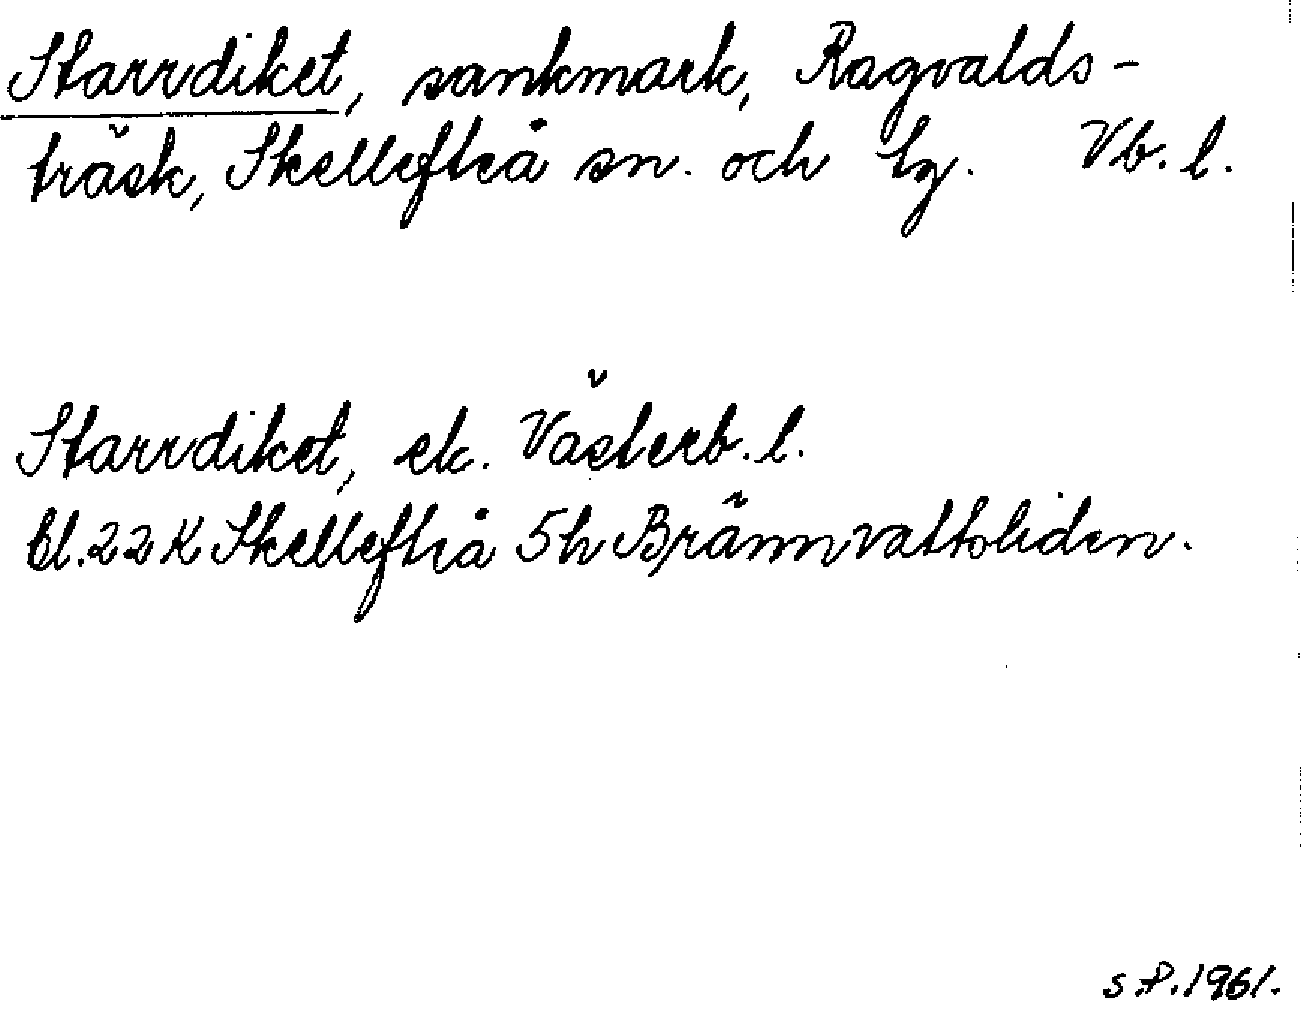 Starrdiket, sankmark, Ragvalds-
träsk, Skellefteå sn. och tg. Vb. l.
Starrdiket, ek. Västerb. l.
bl. 22 K Skellefteå 5h Brännvattsliden.
S.P. 1961.